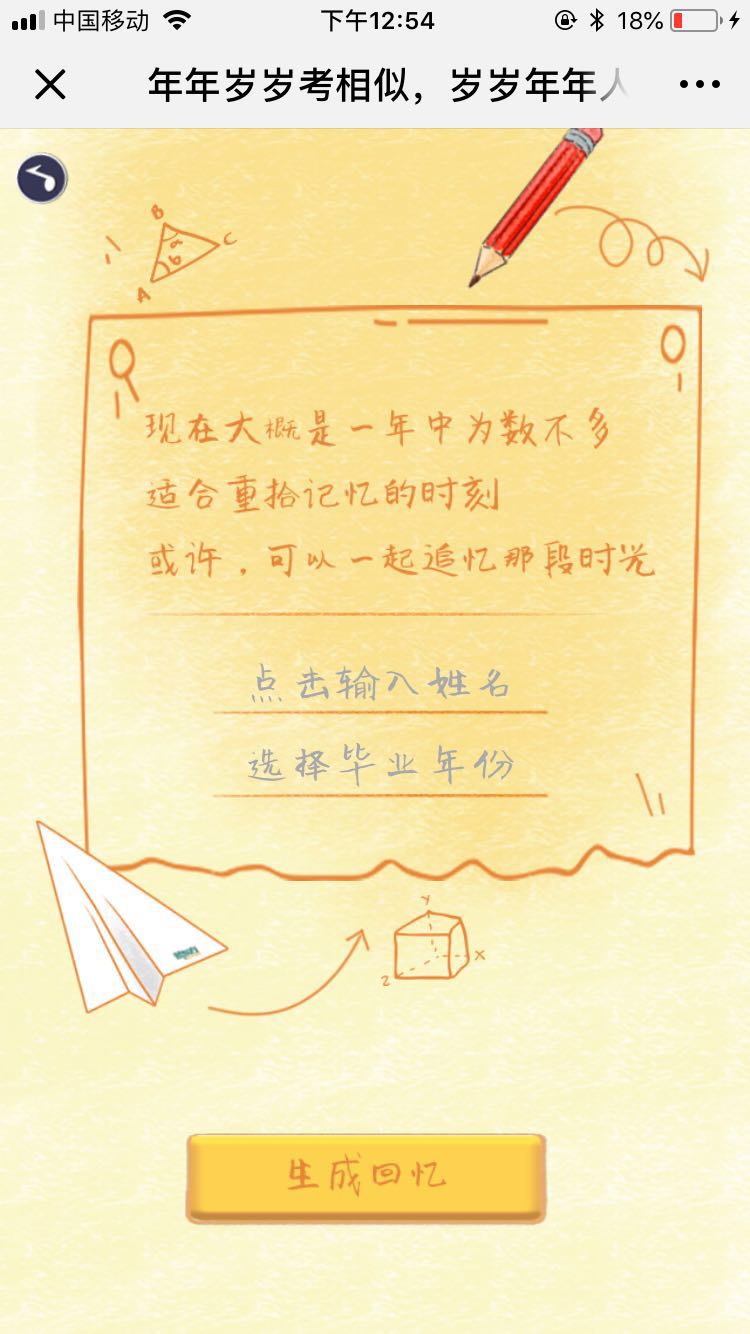 中国移动 下午12:54 18%
年年岁岁考相似，岁岁年年人
B
C
a
b
A
现在大概是一年中为数不多
适合重拾记忆的时刻
或许，可以一起追忆那段时光
点击输入姓名
选择毕业年份
Y
X
Z
生成回忆